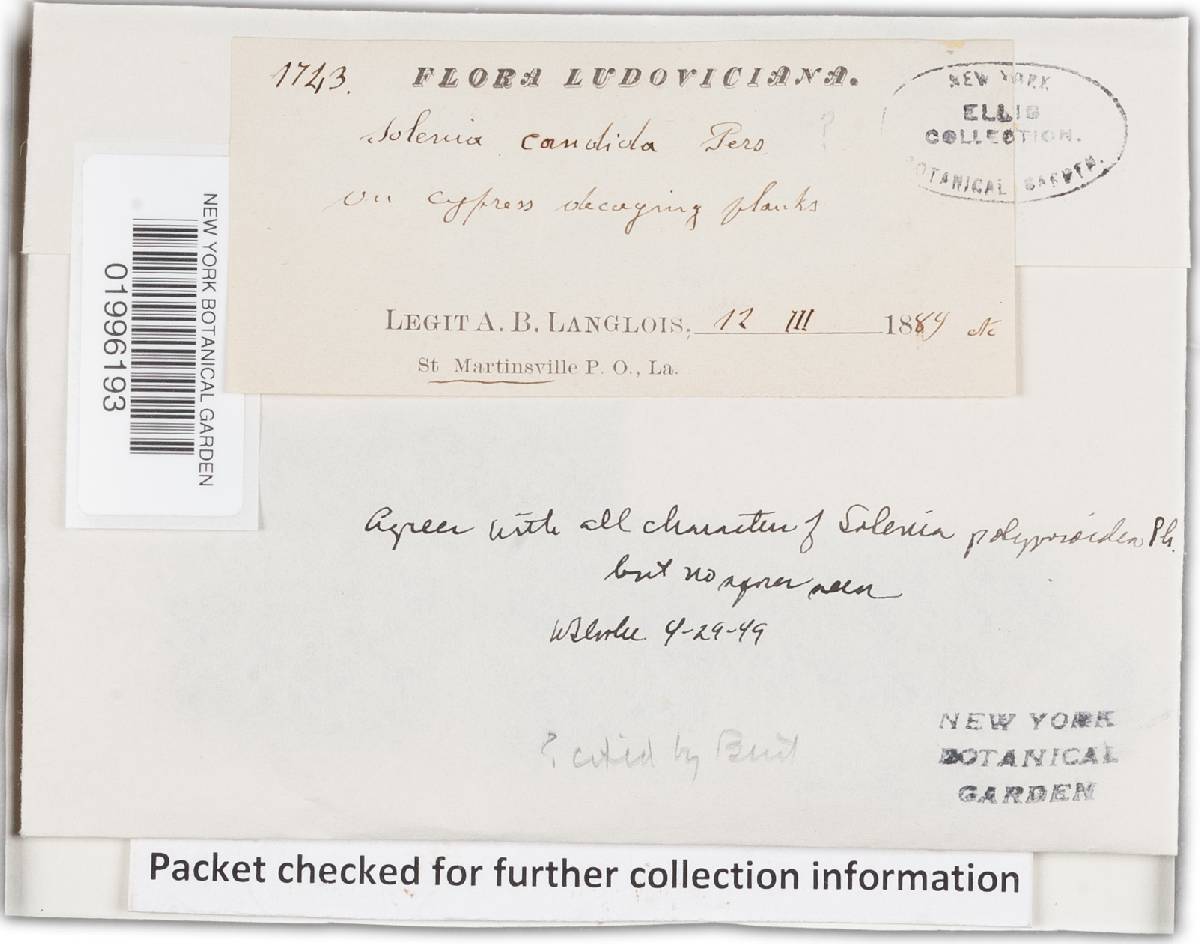 1743. FLORA LUDOVICIANA.
Solenia candida Pers ?
on cypress decaying planks
LEGIT A. B. LANGLOIS, 12 III 1889
St Martinsville P. O., La.
NEW YORK
ELLIS
COLLECTION.
BOTANICAL GARDEN.
NEW YORK BOTANICAL GARDEN
01996193
Agrees with all characters of Solenia polyporoidea Pk.
but no spores seen
WBCooke 4-29-49
? cited by Burt
NEW YORK
BOTANICAL
GARDEN
Packet checked for further collection information